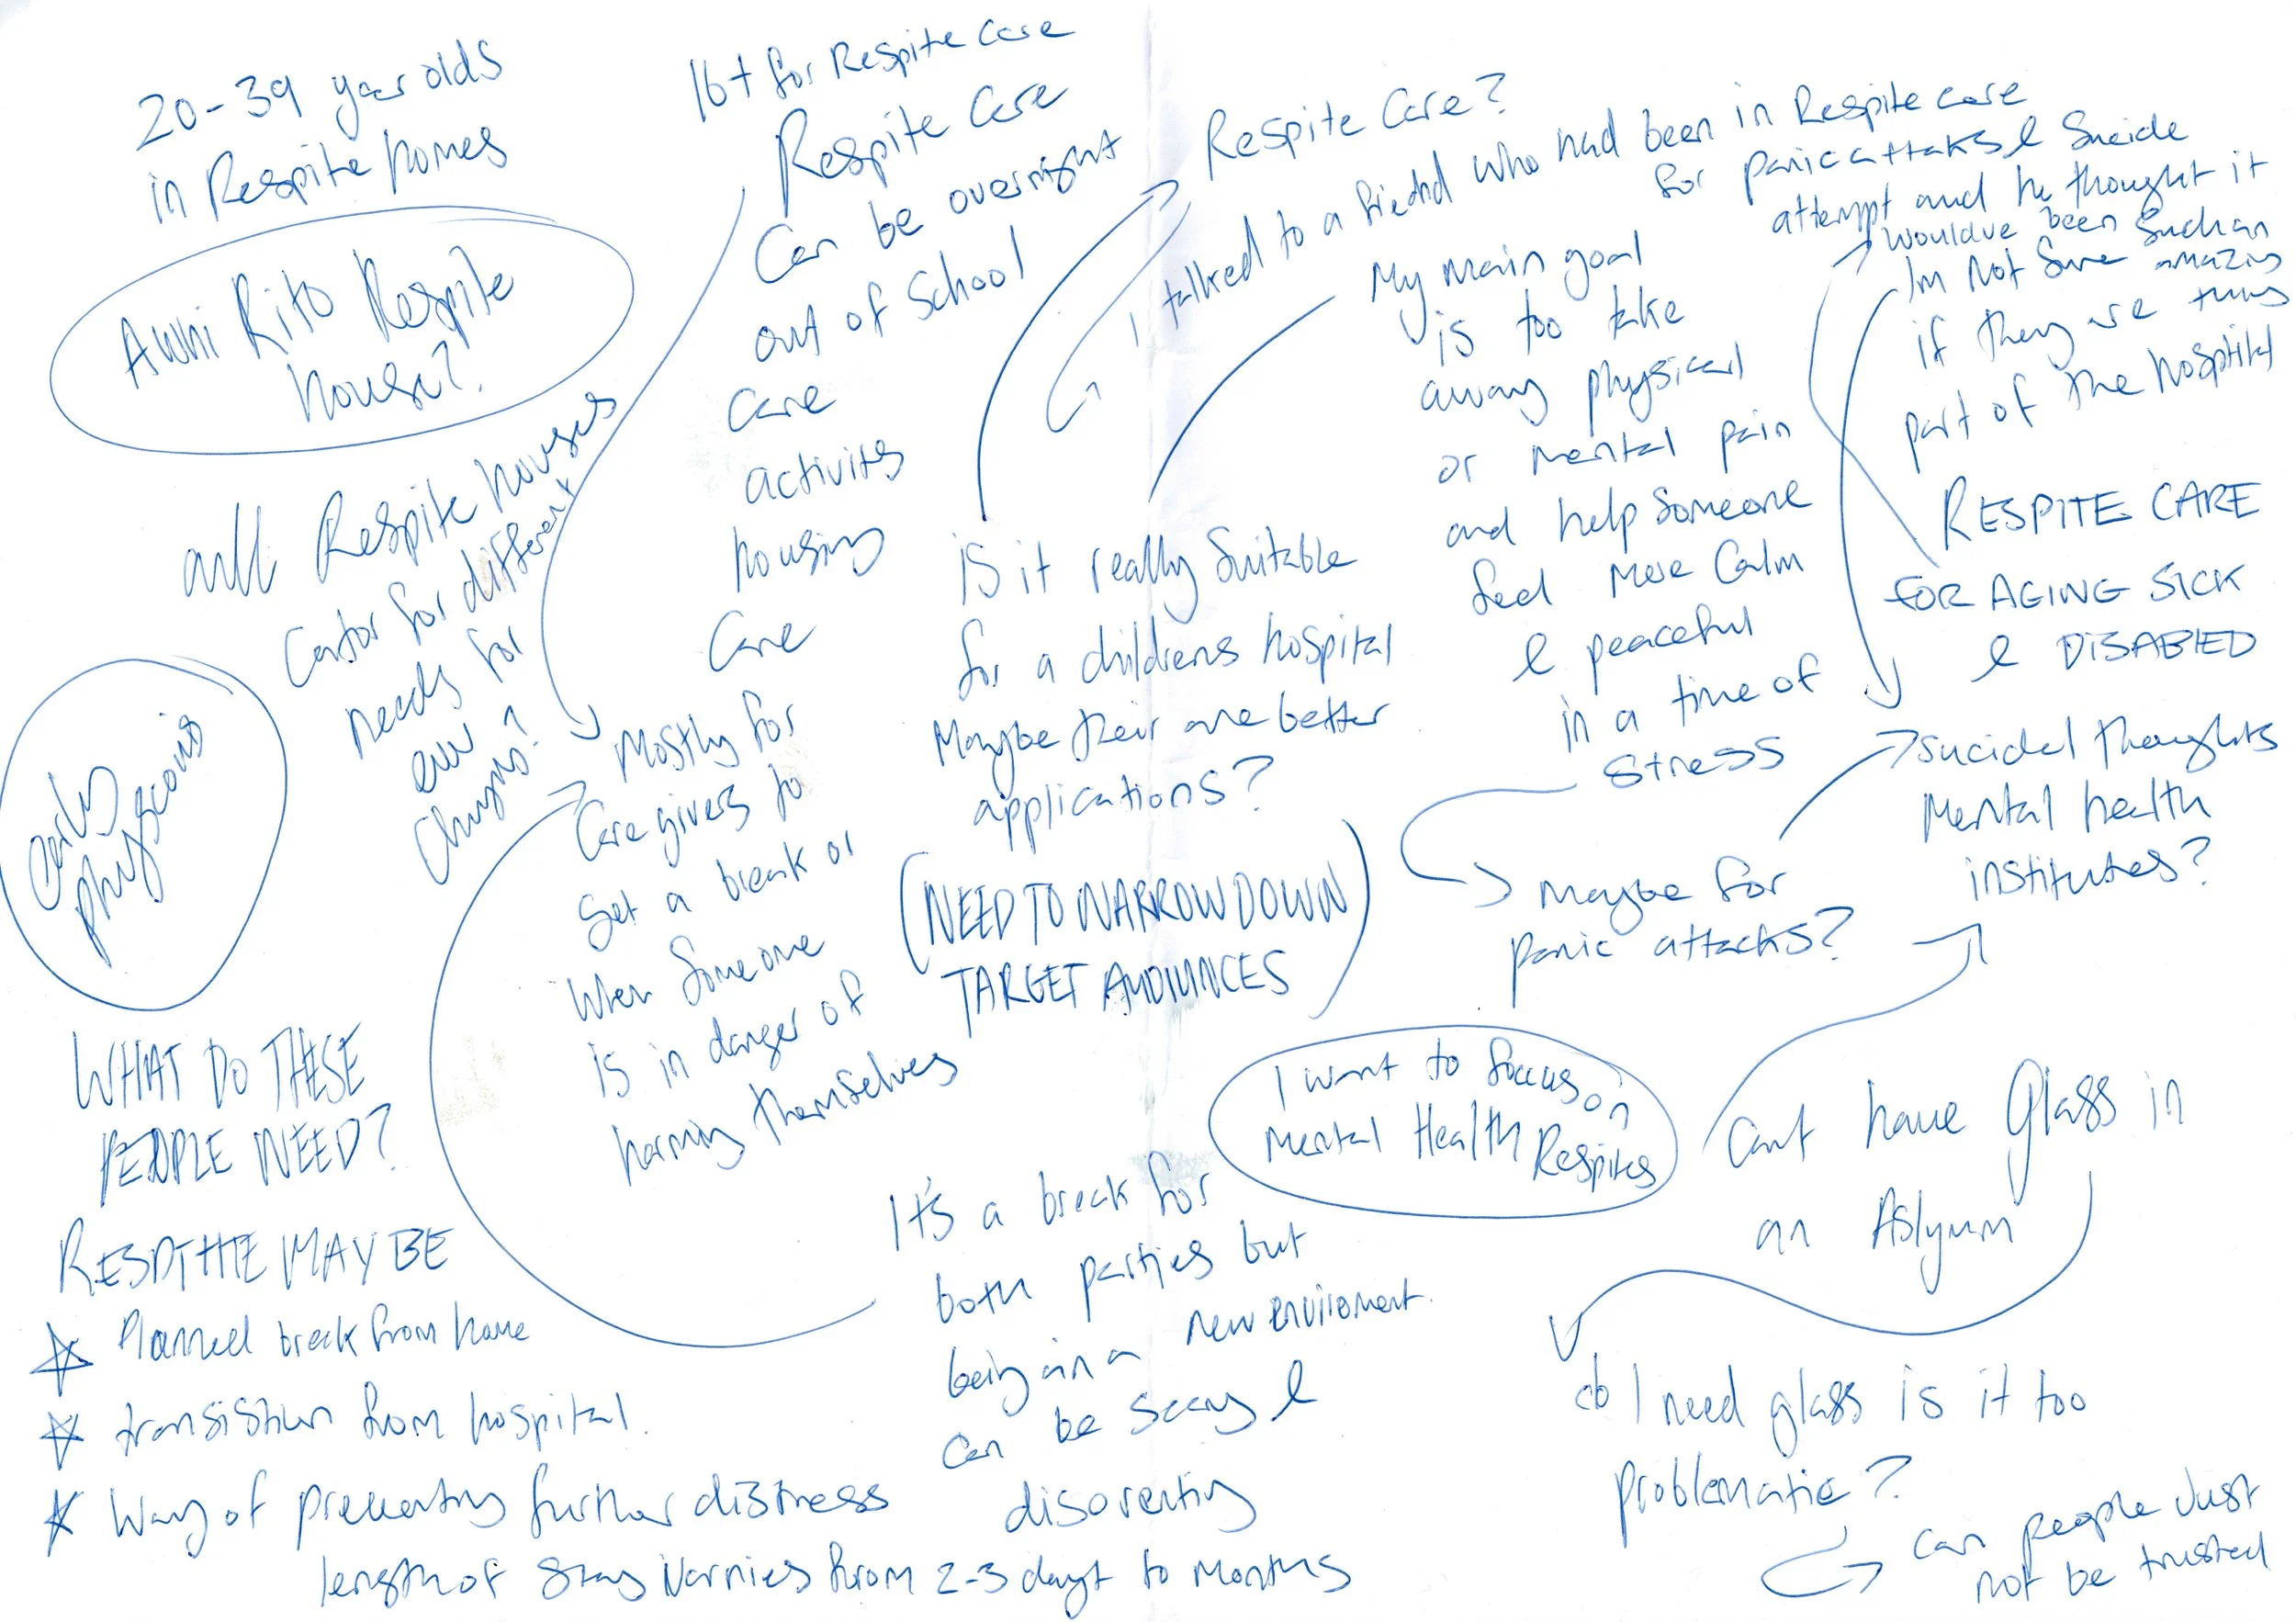 20-39 year olds
in Respite homes
Awhi Rito Respite
house?
all Respite houses
Cator for different
needs for
chums?
early
WHAT DO THESE
PEOPLE NEED?
RESPITHE MAY BE
Planned break from home
transistion from hospital.
Way of preventing further distress
length of stay varries from 2-3 days to months
16+ for Respite Care
Respite Care
Can be overnight
out of School
Care
activites
housing
Care
Mostly for
Care givers to
get a break or
when Someone
is in danger of
harming themselves
It's a break for
both parties but
being in a new enviroment.
can be scary &
disorenting
Respite Care?
I talked to a friend who had been in Respite care
for panic attaks & Sucide
attempt and he thought it
wouldve been Such an
amazing
thing
is it really Suitable
for a childrens hospital
Maybe their are better
applications?
(NEED TO NARROW DOWN
TARGET AUDIUNCES)
My main goal
is too take
away physical
or mental pain
and help Someone
feel More Calm
& peaceful
in a time of
Stress
Maybe for
panic attacks?
I want to focus on
Mental Health Respites
Im Not Sure
if they are
part of the hospital
RESPITE CARE
FOR AGING SICK
& DISABLED
sucidel thoughts
Mental health
institutes?
Cant have Glass in
an Aslyum
do I need glass is it too
problematic?
can people Just
not be trusted